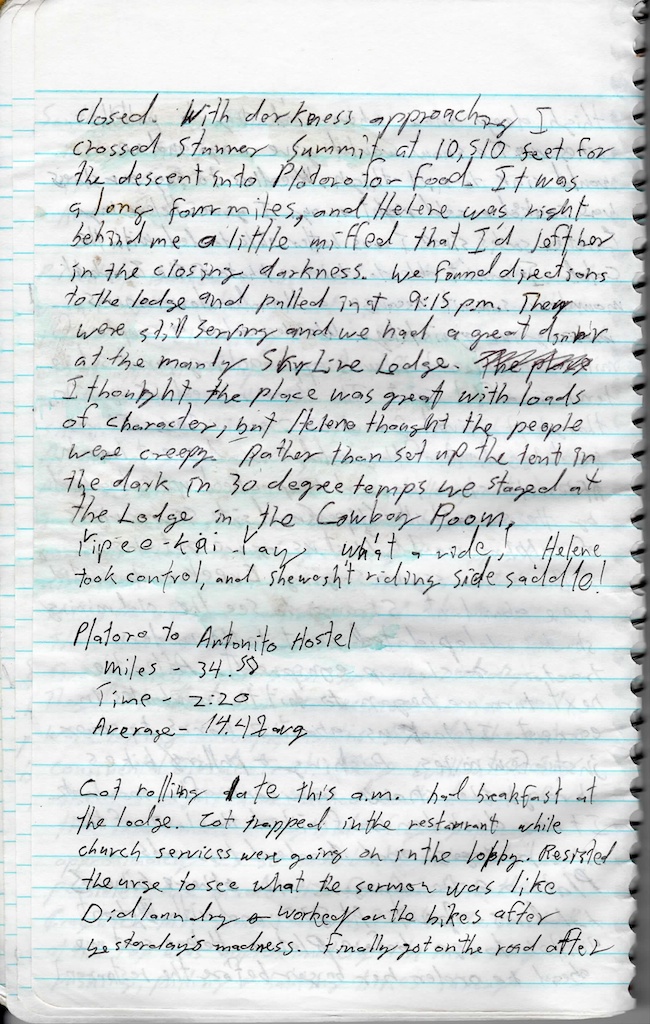 closed. With darkness approaching I
crossed Stunner Summit at 10,510 feet for
the descent into Platoro for food. It was
a long four miles, and Helene was right
behind me a little miffed that I'd left her
in the closing darkness. We found directions
to the lodge and pulled in at 9:15 p.m. They
were still serving and we had a great dinner
at the manly SkyLine Lodge. The place
I thought the place was great with loads
of character, but Helene thought the people
were creepy. Rather than set up the tent in
the dark in 30 degree temps we stayed at
the Lodge in the Cowboy Room.
Yipee-Kai-Yay what a ride! Helene
took control, and she wasn't riding side saddle!
Platoro to Antonito Hostel
miles - 34.
Time - 2:20
Average - 14.42 avg
Got rolling late this a.m. had breakfast at
the lodge. Got trapped in the restaurant while
church services were going on in the lobby. Resisted
the urge to see what the sermon was like
Did laundry & worked on the bikes after
yesterday's madness. Finally got on the road after